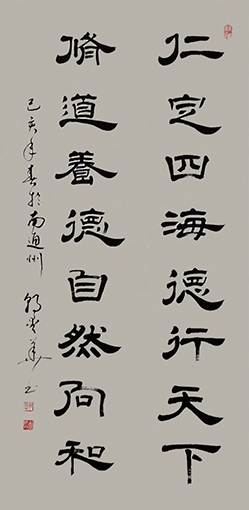 仁定四海德行天下
脩道養德自然向和
己亥年春於南通州